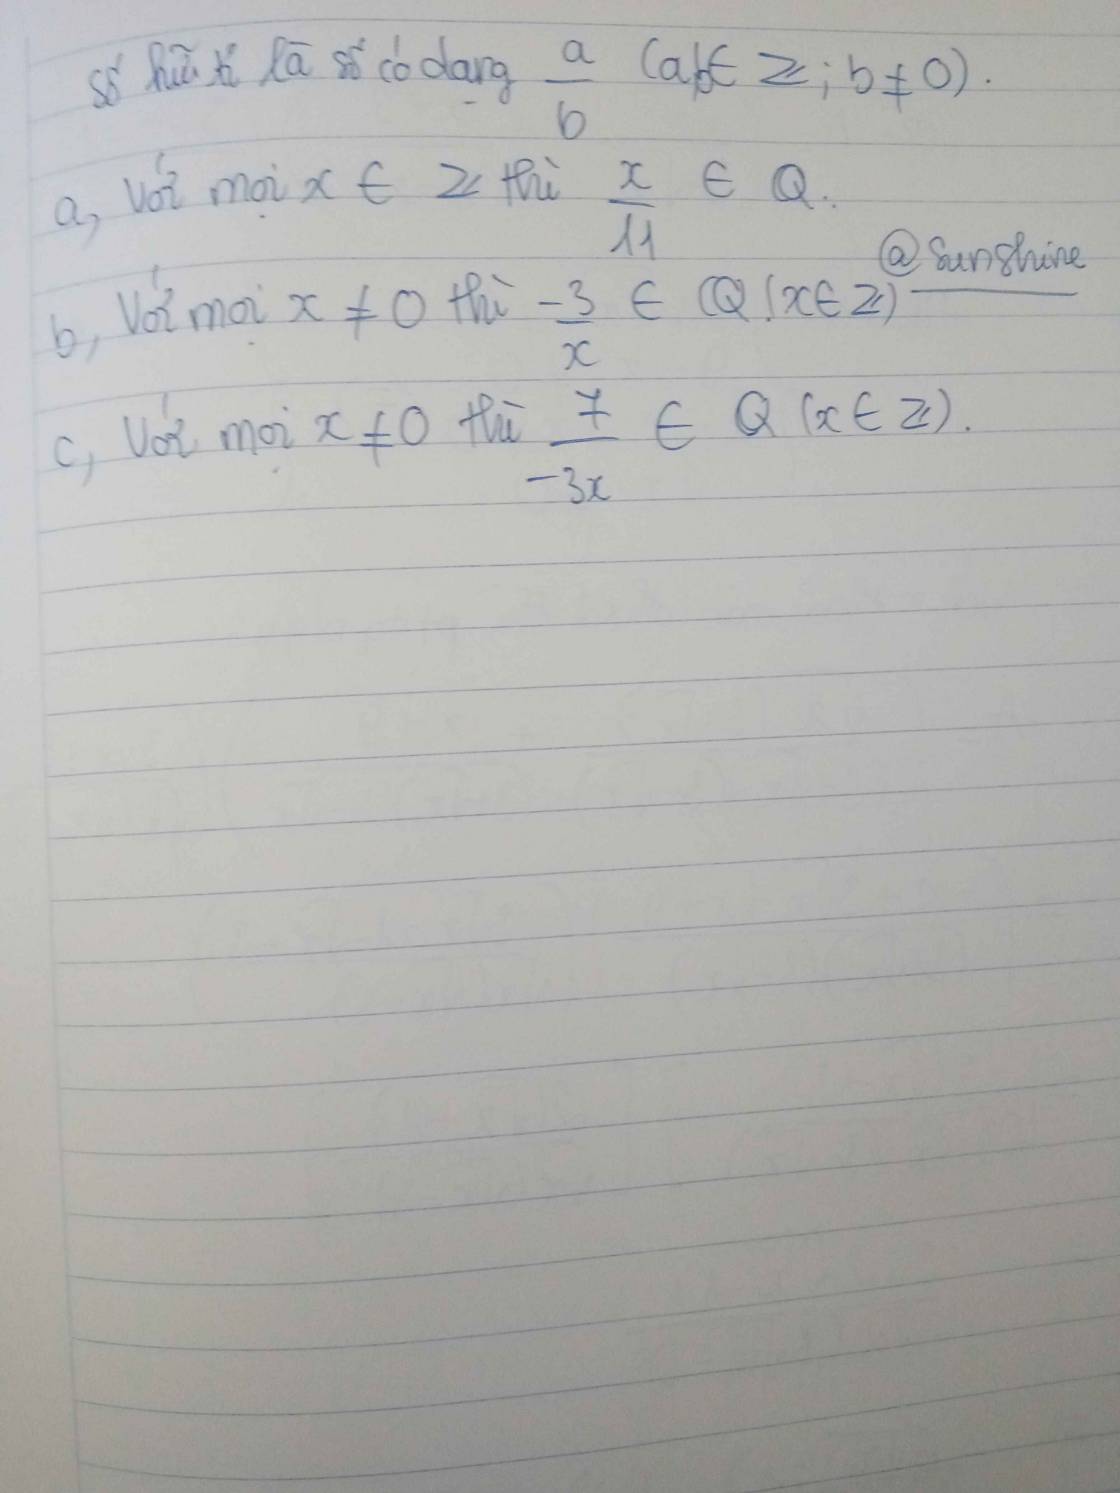 số hữu tỉ là số có dạng a/b (a,b∈ Z; b≠0).
a, Với mọi x ∈ Z thì x/11 ∈ Q.
@Sunshine
b, Với mọi x ≠ 0 thì -3/x ∈ Q (x∈Z)
c, Với mọi x≠0 thì 7/-3x ∈ Q (x∈Z).